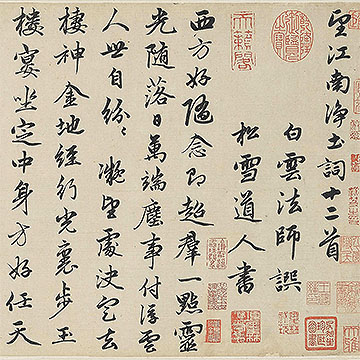 望江南淨土詞十二首
白雲法師譔
松雪道人書
西方好隨念即超羣一點靈
光隨落日萬端塵事付浮雲
人世自紛〻凝望處決定去
棲神金地經行光裏步玉
樓宴坐定中身方好任天